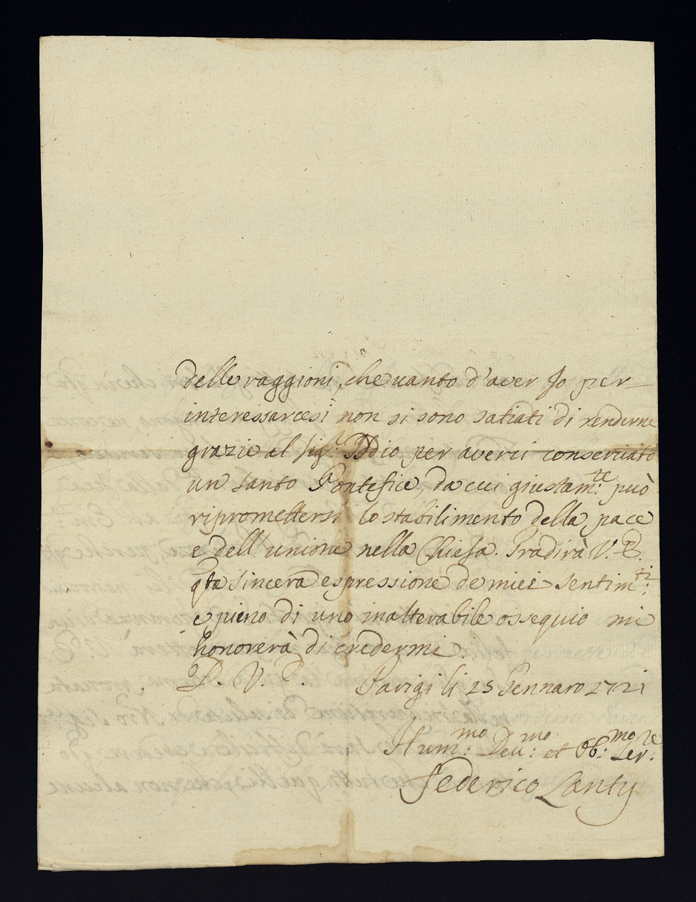 delle raggioni, che uanto d'aver Jo per
interessarcesi non si sono satiati di renderne
grazie al Sig.r Iddio per averci conseruato
un santo Pontefice, da cui giustam:te può
ripromettersi lo stabilimento della pace
e dell'unione nella Chiesa. Gradirà V. E.
qta sincera espressione de miei sentim:ti
e pieno di uno inalterabile ossequio mi
honorerà di credermi
D. V. E. Parigi li 25 Gennaro 1721
Hum:mo Deu:mo et Ob:mo Ser:re
Federico Lanty